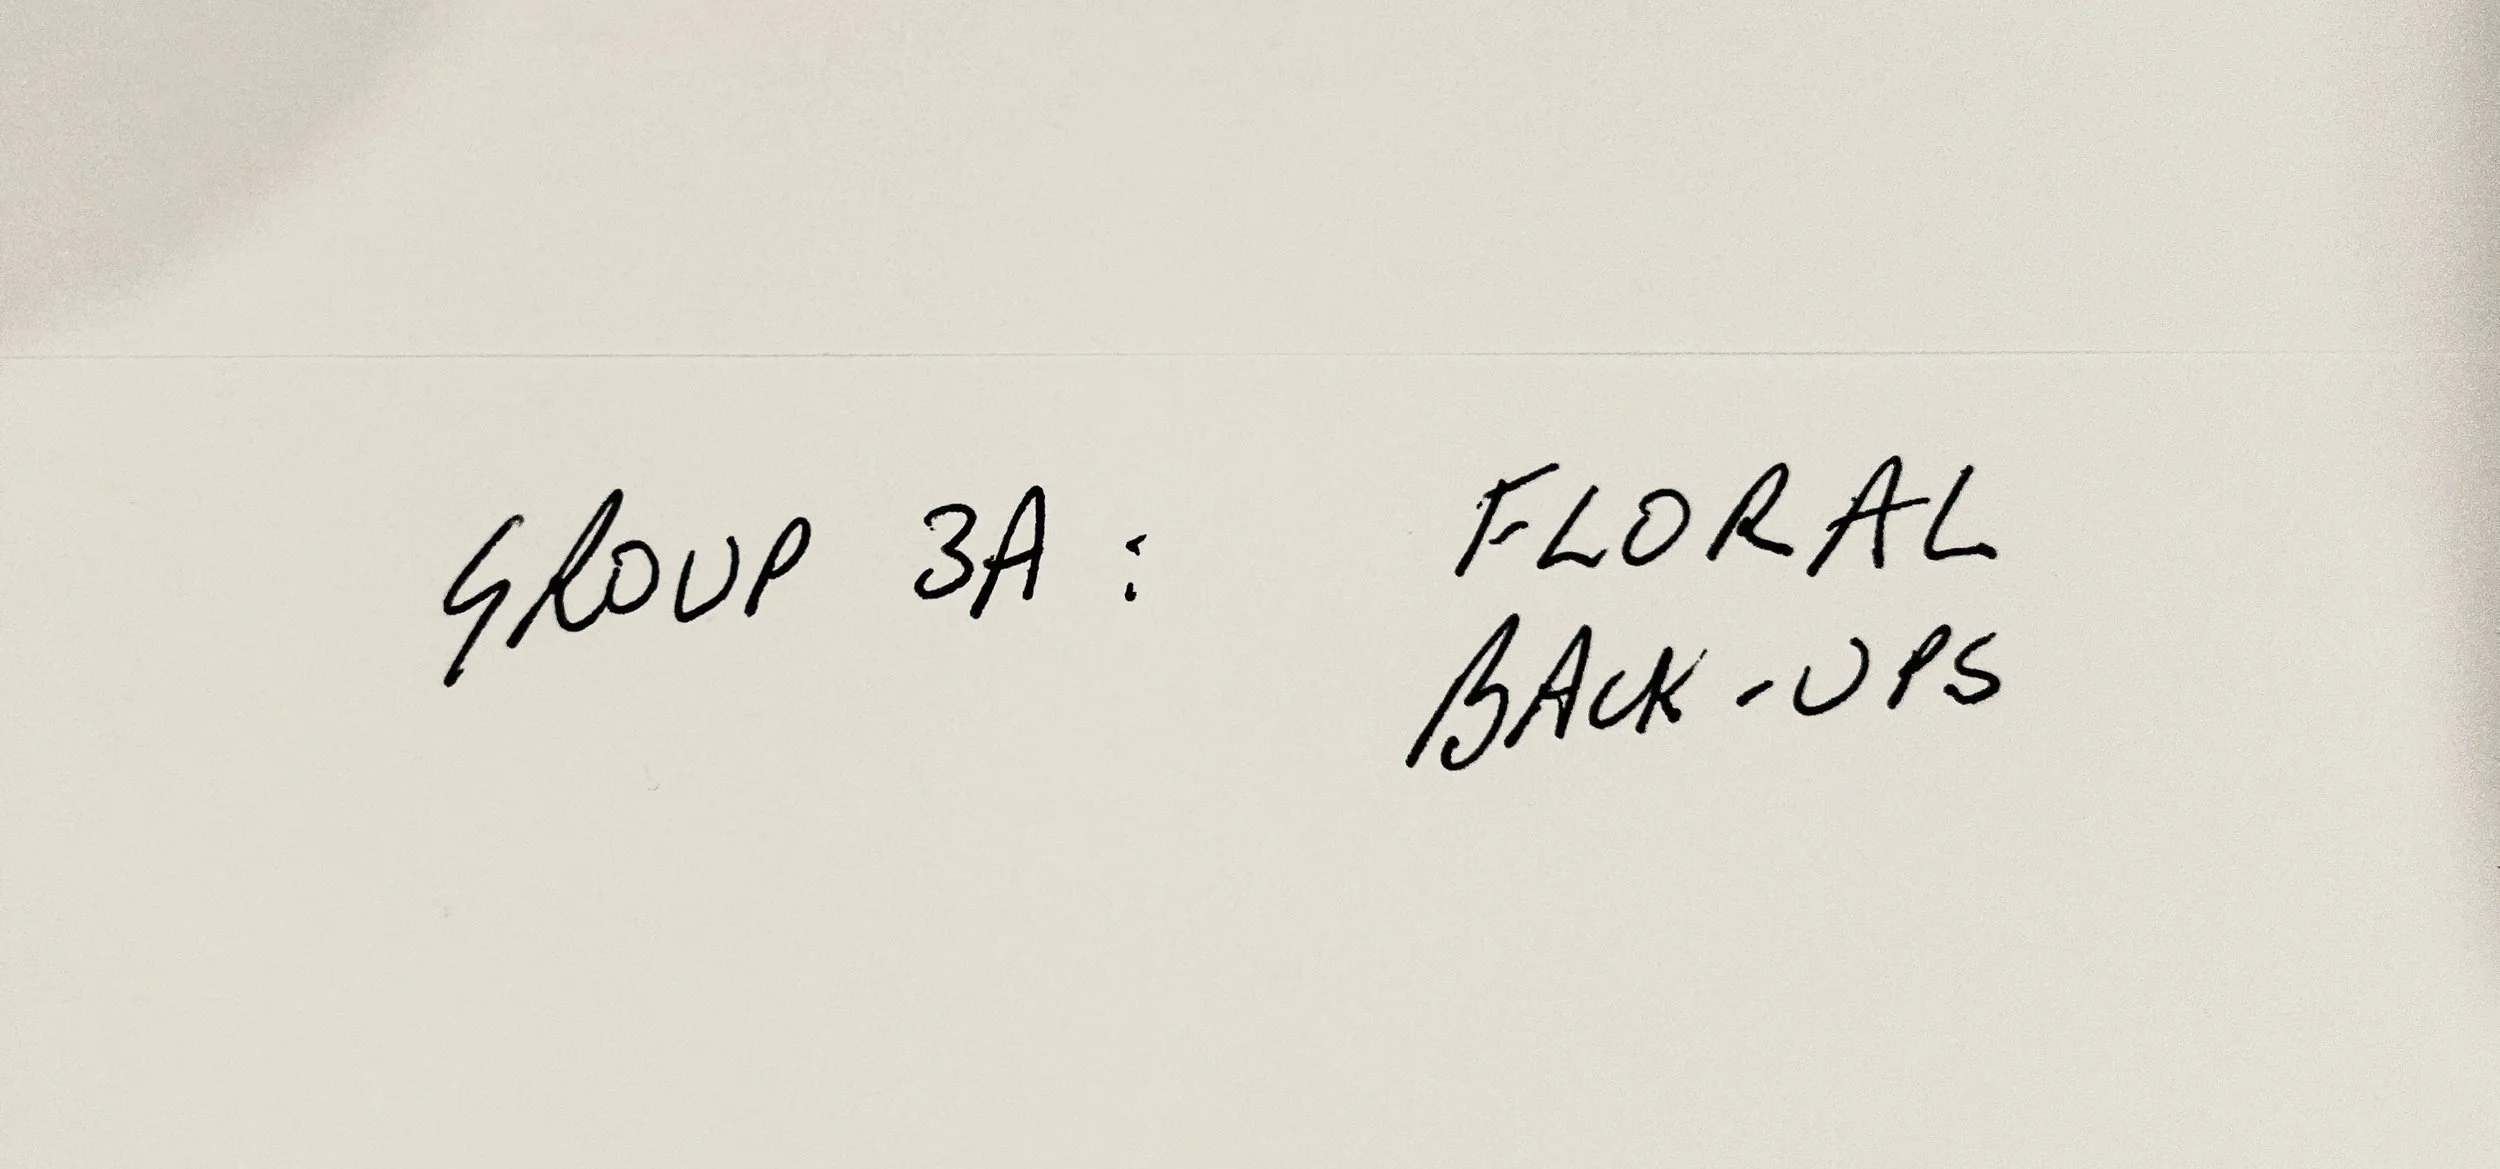 GROUP 3A : FLORAL
BACK-UPS